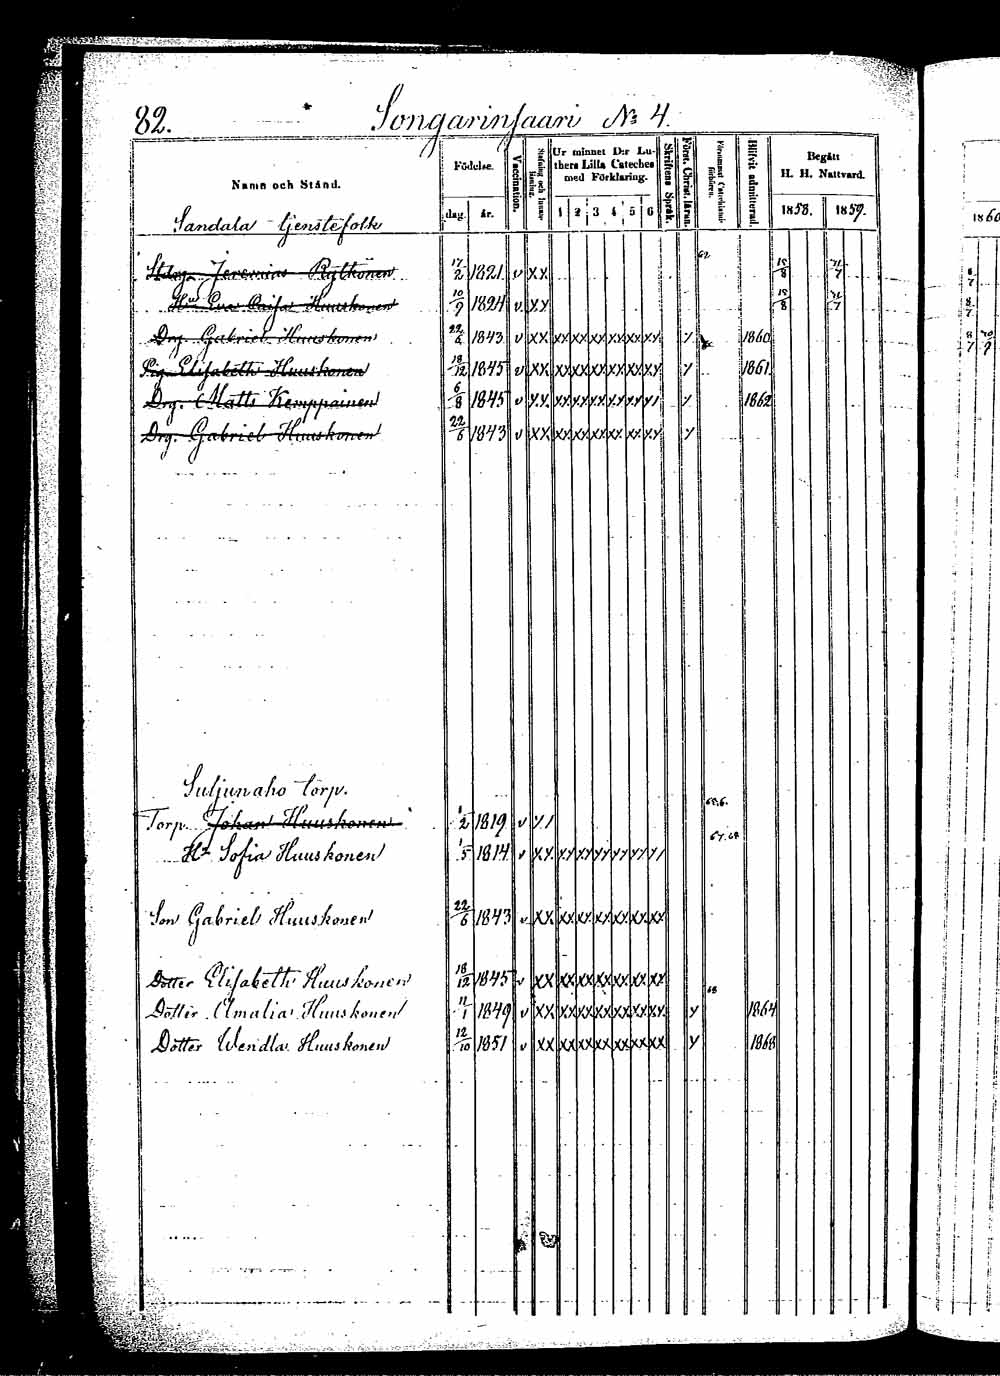 82. Songarinsaari No 4.
Namn och Stånd.
Födelse.
dag. år.
Vaccination.
Stafning och Innanläsning.
Ur minnet D:r Luthers Lilla Cateches med Förklaring.
1 2 3 4 5 6
Skriftens Språk.
Först. Christ. läran.
Blifvit admitterad.
Begått
H. H. Nattvard.
1858. 1859.
1860
Sandala tjenstefolk
62
Jeremias Rytkönen 17/2 1821 v XX 15/8
Hu Eva Caisa Huuskonen 10/9 1824 v XX 15/8
Drg. Gabriel Huuskonen 22/6 1843 v XX XX XX XX XX XX XX Y 1860
Pig. Elisabeth Huuskonen 18/12 1845 v XX XX XX XX XX XX XX Y 1861
Drg. Matts Kemppainen 6/8 1845 v XX XX XX XX XX XX Y 1862
Drg. Gabriel Huuskonen 22/6 1843 v XX XX XX XX XX XX XX Y
Suljunaho torp.
Torp. Johan Huuskonen 1/2 1819 v
67.68
H:u Sofia Huuskonen 1/5 1814 v XX
Son Gabriel Huuskonen 22/6 1843 v XX XX XX XX XX XX XX
Dotter Elisabeth Huuskonen 18/12 1845 v XX XX XX XX XX XX XX
68
Dotter Amalia Huuskonen 11/1 1849 v XX XX XX XX XX XX XX Y 1864
Dotter Wendla Huuskonen 12/10 1851 v XX XX XX XX XX XX XX Y 1868